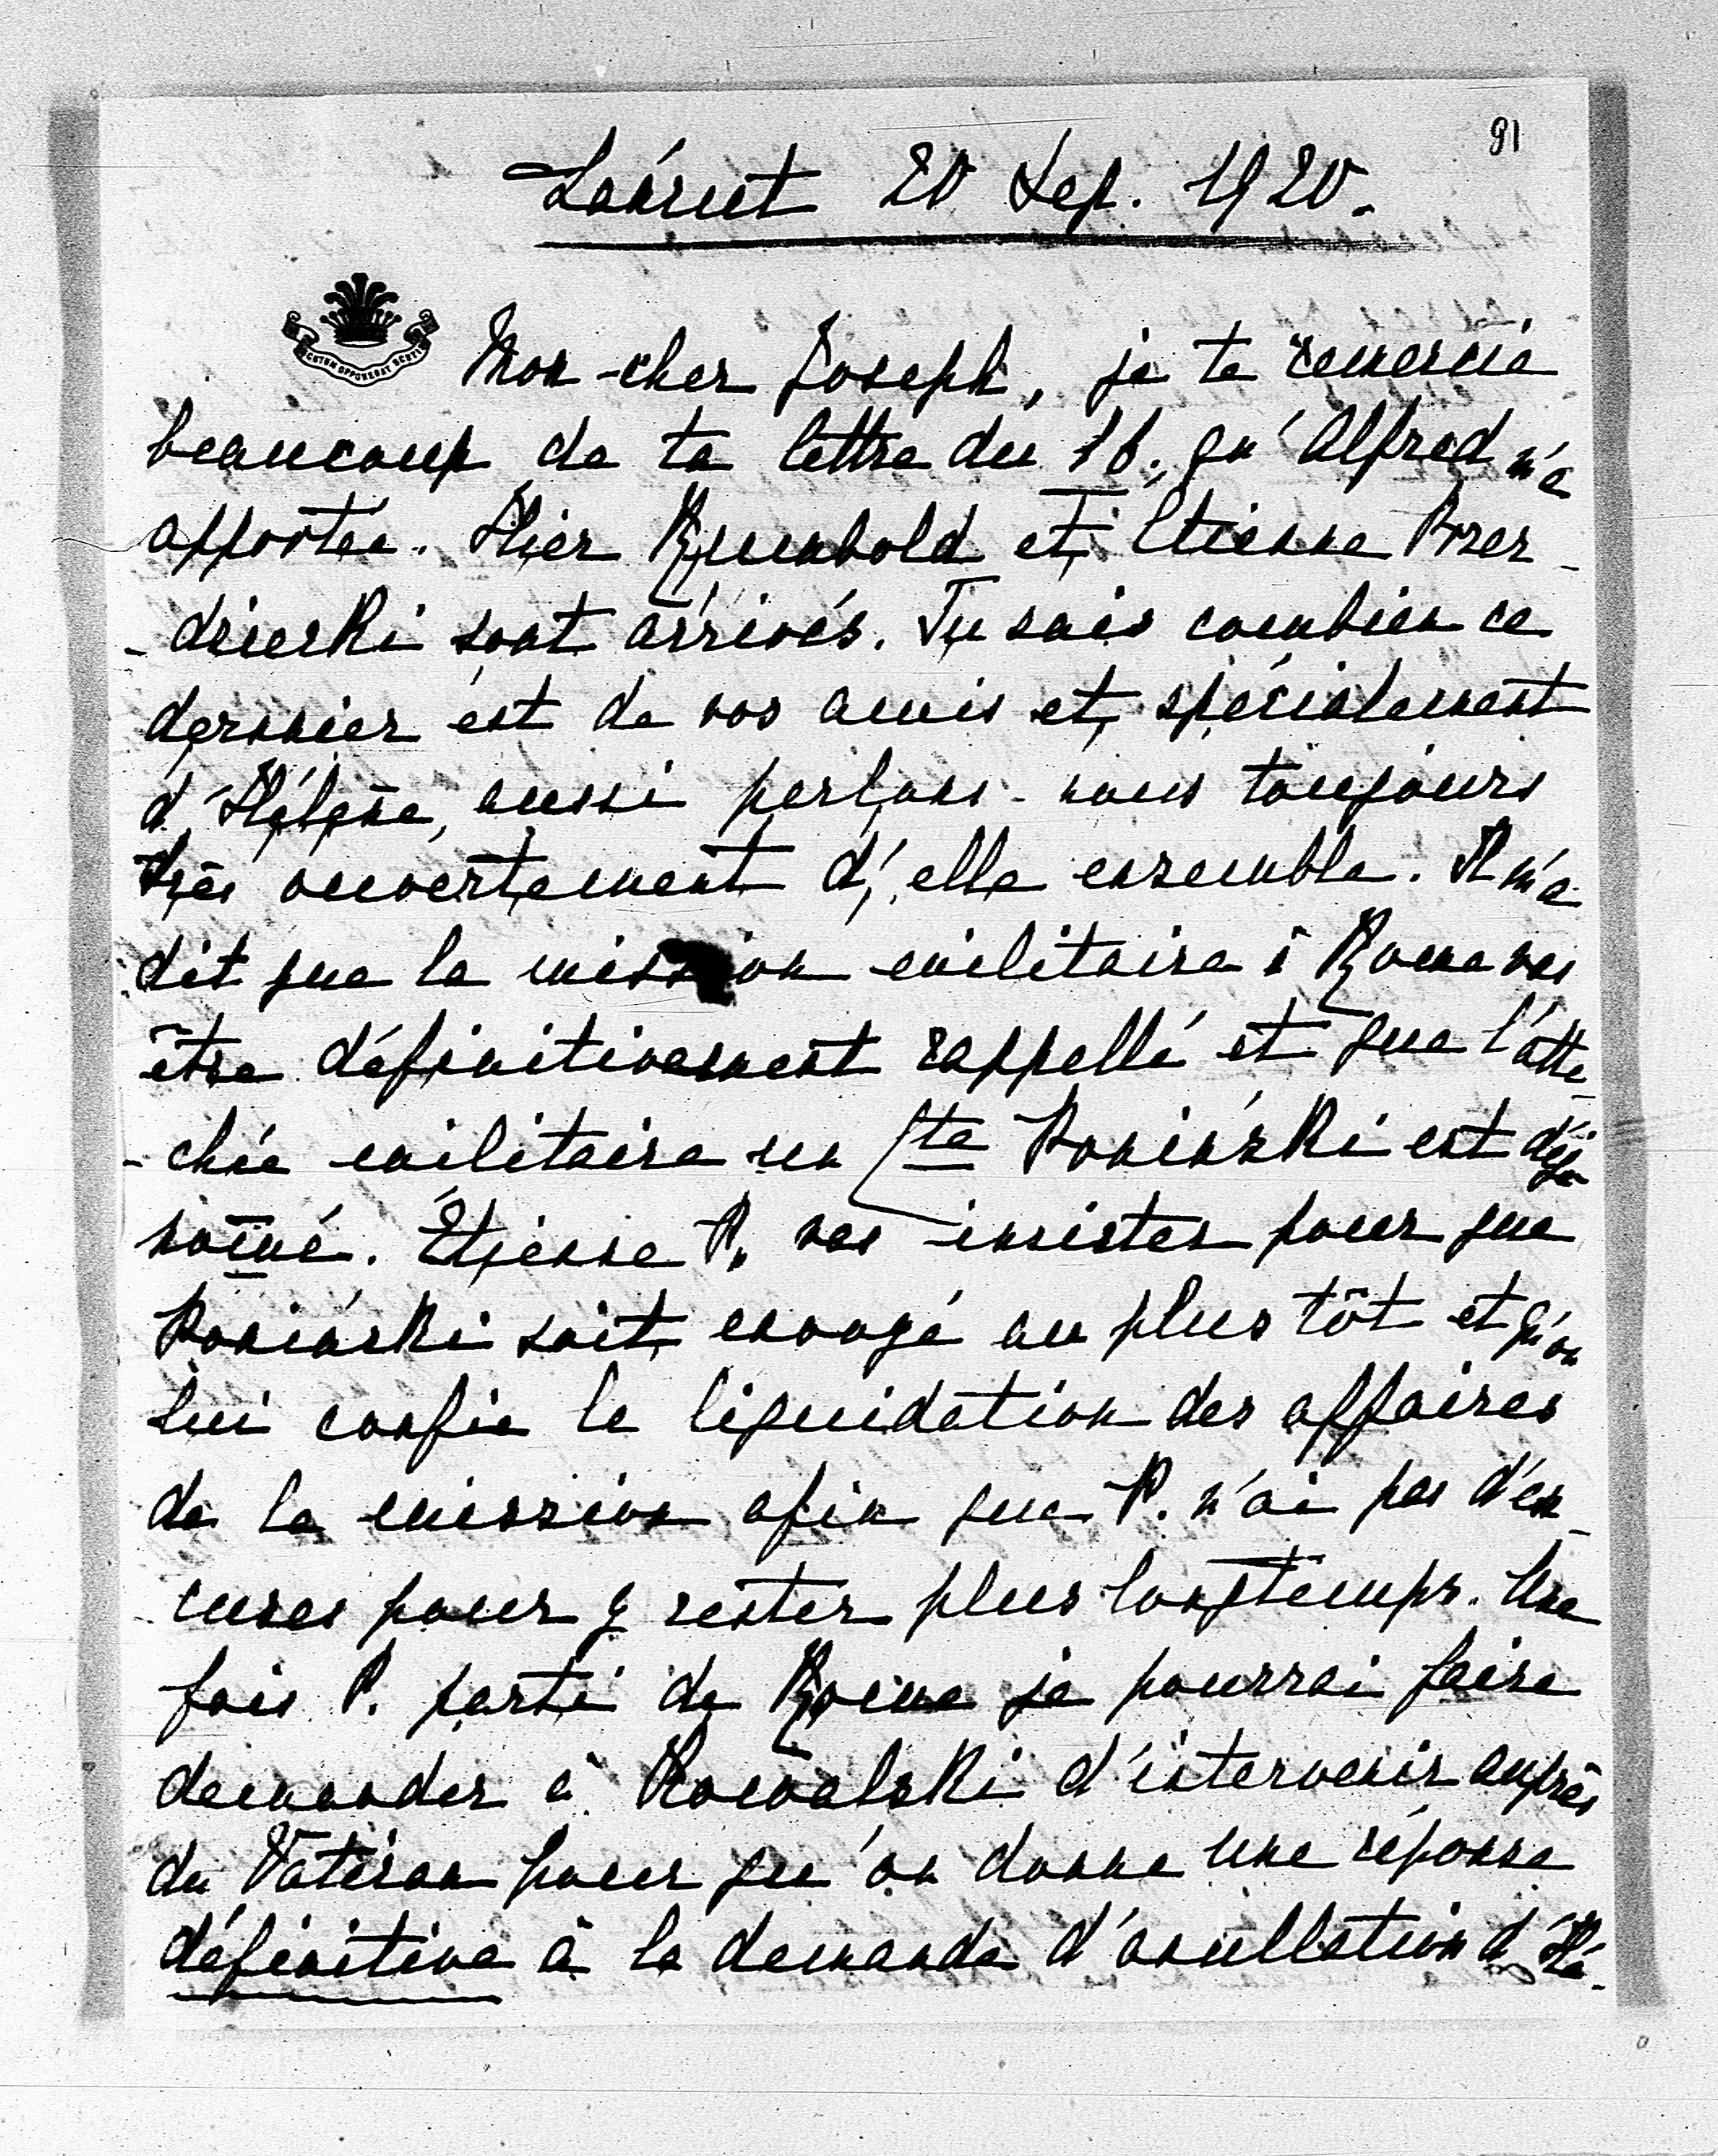 91
Łańcut 20 Sep. 1920.
SCUTUM OPPONEBAT SCUTIS
Mon cher Joseph, je te remercie
beaucoup de ta lettre du 16. qu'Alfred m'a
apportée. Hier Rumbold et Etienne Przez-
-dziecki sont arrivés. Tu sais combien ce
dernier est de nos amis et spécialement
d'Hélène, aussi parlons-nous toujours
très ouvertement d'elle ensemble. Il m'a
dit que la mission militaire à Rome vas
être définitivement rappellé et que l'atta-
-chée militaire un Cte Poniński est déjà
nom̄é. Étienne P. vas insister pour que
Poniński soit envoyé au plus tôt et qu'on
lui confie la liquidation des affaires
de la mission afin que P. n'ai pas d'ex-
cuses pour y rester plus longtemps. Une
fois P. parti de Rome je pourrai faire
demander à Kowalski d'intervenir auprès
du Vatican pour qu'on donne une réponse
définitive à la demande d'anullation d'Hé-